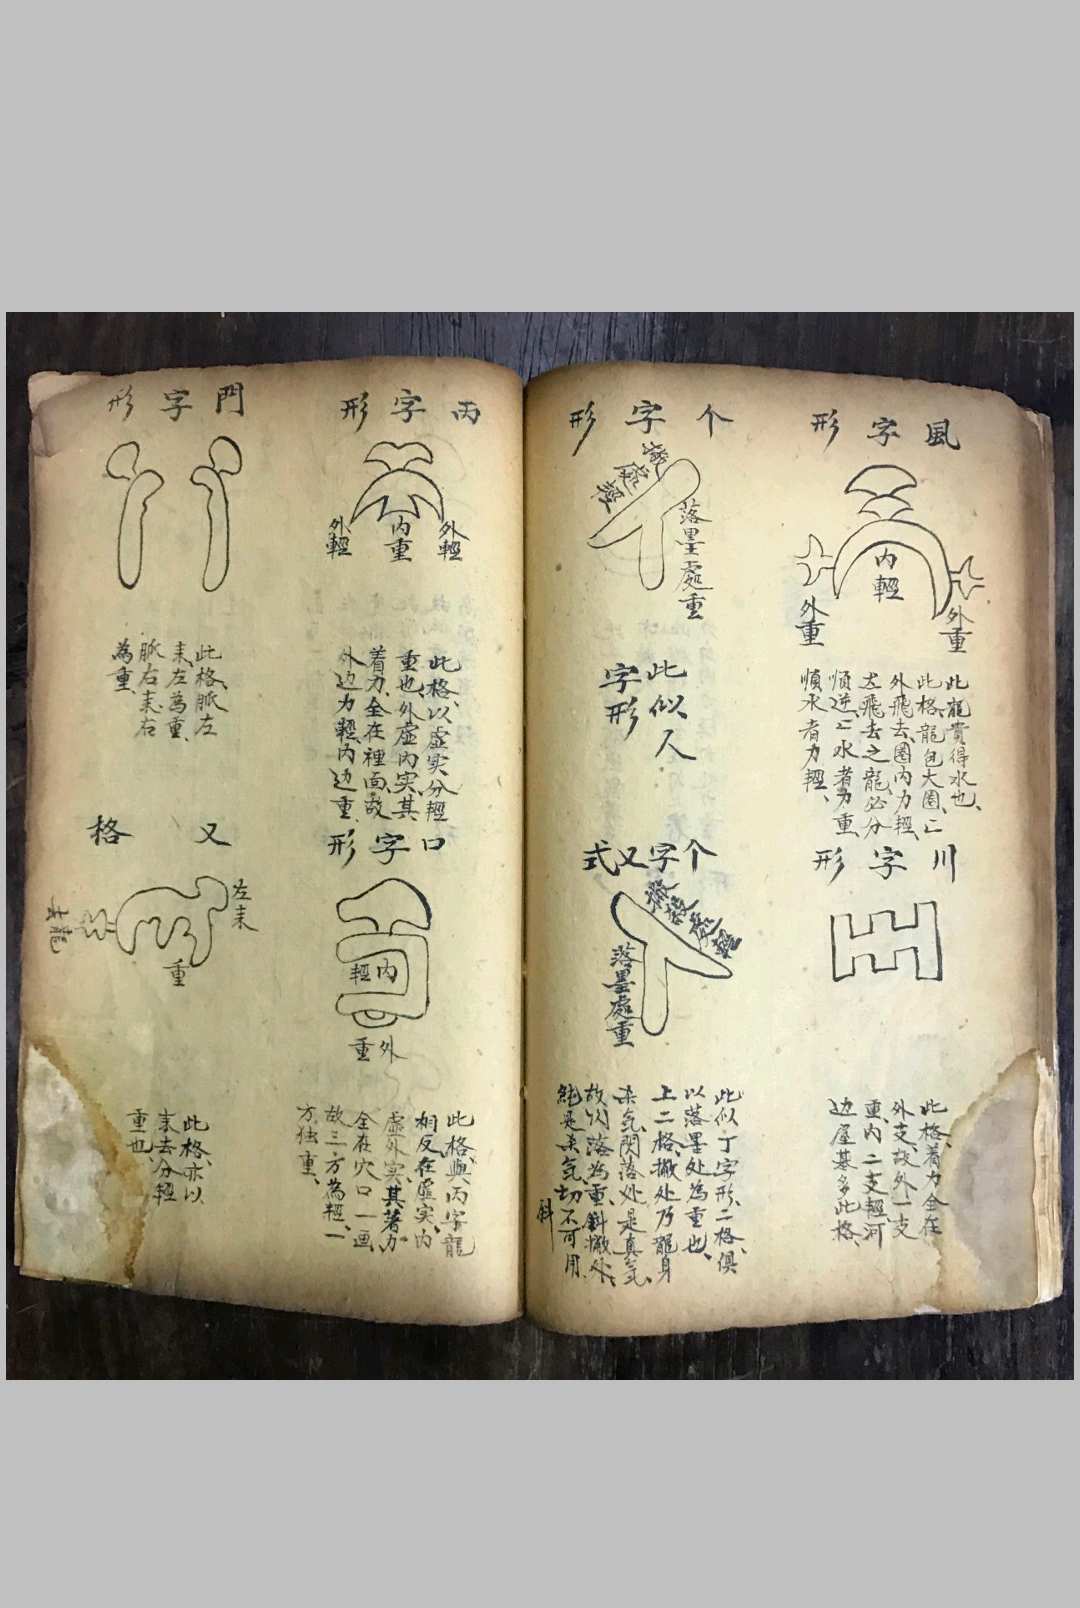 風字形
内輕
外重
外重
此龍貴得水也、
此格、龍包大圈、二
外飛去、圈内力輕、
左飛去之龍、必分
順逆、亡水者力重、
順水者力輕、
川字形
此格、着力全在
外支、故外一支
重、内二支輕、河
边屋基多此格、
个字形
撇處輕
落墨處重
此似人
字形
个字又式
撇處輕
落墨處重
此似丁字形、二格、俱
以落墨处為重也、
上二格、撇处乃龍身
杀気閃落处、是真気、
故以落為重、斜撇处、
純是杀気、切不可用
斜
丙字形
外輕
内重
外輕
此格、以虚实分輕
重也、外虚内实、其
着力、全在裡面、故
外边力輕、内边重、
口字形
内輕
外重
此格、與丙字龍
相反、在虚实、内
虚外实、其著力
全在穴口一画
故三方為輕、一
方独重、
門字形
此格、脈左
来、左為重、
脈右来、右
為重、
又格
左来
去龍
重
此格、亦以
来去分輕
重也、